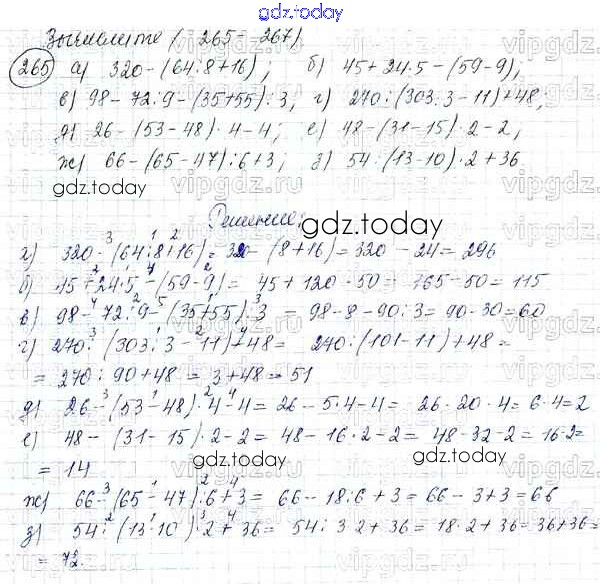 gdz.today
Вычислите ( 265 - 267)
265 а) 320 - (64:8+16); б) 45+24·5 - (59-9);
в) 98 - 72:9 - (35+55):3; г) 270:(303:3 - 11)+48;
д) 26 - (53 - 48)·4 - 4; е) 48 - (31 - 15)·2 - 2;
ж) 66 - (65 - 47):6 + 3; з) 54:(13 - 10)·2 + 36.
gdz.today
Решение: gdz.today
а) 320 - (64:8+16) = 320 - (8+16) = 320 - 24 = 296
б) 45+24·5 - (59-9) = 45 + 120 - 50 = 165 - 50 = 115
в) 98 - 72:9 - (35+55):3 = 98 - 8 - 90:3 = 90 - 30 = 60
г) 270:(303:3 - 11)+48 = 270:(101 - 11) + 48 =
= 270:90 + 48 = 3 + 48 = 51
д) 26 - (53 - 48)·4 - 4 = 26 - 5·4 - 4 = 26 - 20 - 4 = 6 - 4 = 2
е) 48 - (31 - 15)·2 - 2 = 48 - 16·2 - 2 = 48 - 32 - 2 = 16 - 2 =
= 14
gdz.today gdz.today
ж) 66 - (65 - 47):6 + 3 = 66 - 18:6 + 3 = 66 - 3 + 3 = 66
з) 54:(13 - 10)·2 + 36 = 54:3·2 + 36 = 18·2 + 36 = 36 + 36 =
= 72.
gdz.today